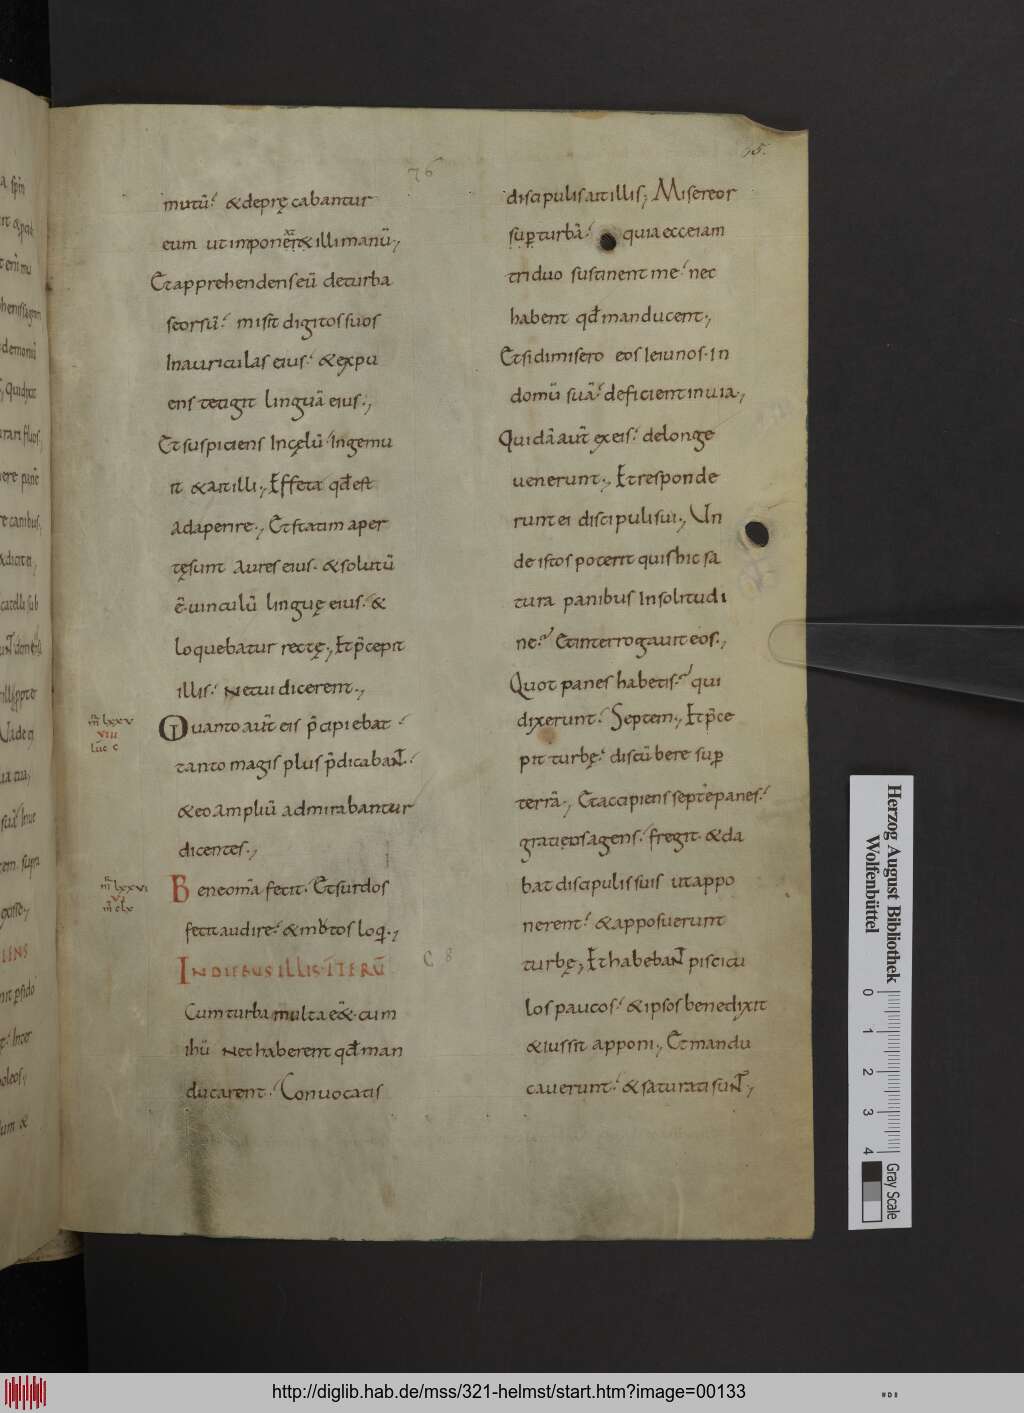 76
95.
mutū. & deprę cabantur
eum ut imponer& illi manū.,
Et apprehendens eū de turba
seorsū. misit digitos suos
In auriculas eius. & expu
ens tetigit linguā eius.,
Et suspiciens In cęlū. Ingemu
it & ait illi., Effeta qđ est
adaperire., Et statim aper
tęsunt aures eius. & solutū
ē uinculū linguę eius. &
loquebatur rectę., Et p̄cepit
illis. Ne cui dicerent.,
m̄r lxxv
VIII
Luc c
Quanto aūt eis p̄cipiebat.
tanto magis plus p̄dicabaNT.
& eo ampliū admirabantur
dicentes.,
m̄r lxxvi
VI
m̄ clx
Bene om̄a fecit. Et surdos
fecit audire. & mutos loq.,
IN DIEBUS ILLIS ITERŪ
C 8
Cum turba multa eē&. cum
ihū Nec haberent qđ man
ducarent. Conuocatis
discipulis ait illis., Misereor
sup turbā. quia ecce iam
triduo sustinent me. nec
habent qđ manducent.,
Et si dimisero eos Ieiunos. In
domū suā. deficient in uia.,
Quidā aūt ex eis. de longe
uenerunt., Et responde
runt ei discipuli sui., Un
de istos poterit quis hic sa
tura panibus In solitudi
ne. Et interrogauit eos.,
Quot panes habetis. qui
dixerunt. Septem., Et p̄ce
pit turbę. discūbere sup
terrā., Et accipiens septē panes.
gratięs agens. fregit. & da
bat discipulis suis ut appo
nerent. & apposuerunt
turbę., Et habebaNT piscicu
los paucos. & ipsos benedixit
& iussit apponi., Et mandu
cauerunt. & saturati suNT.,
Herzog August Bibliothek
Wolfenbüttel
0 1 2 3 4
Gray Scale
http://diglib.hab.de/mss/321-helmst/start.htm?image=00133